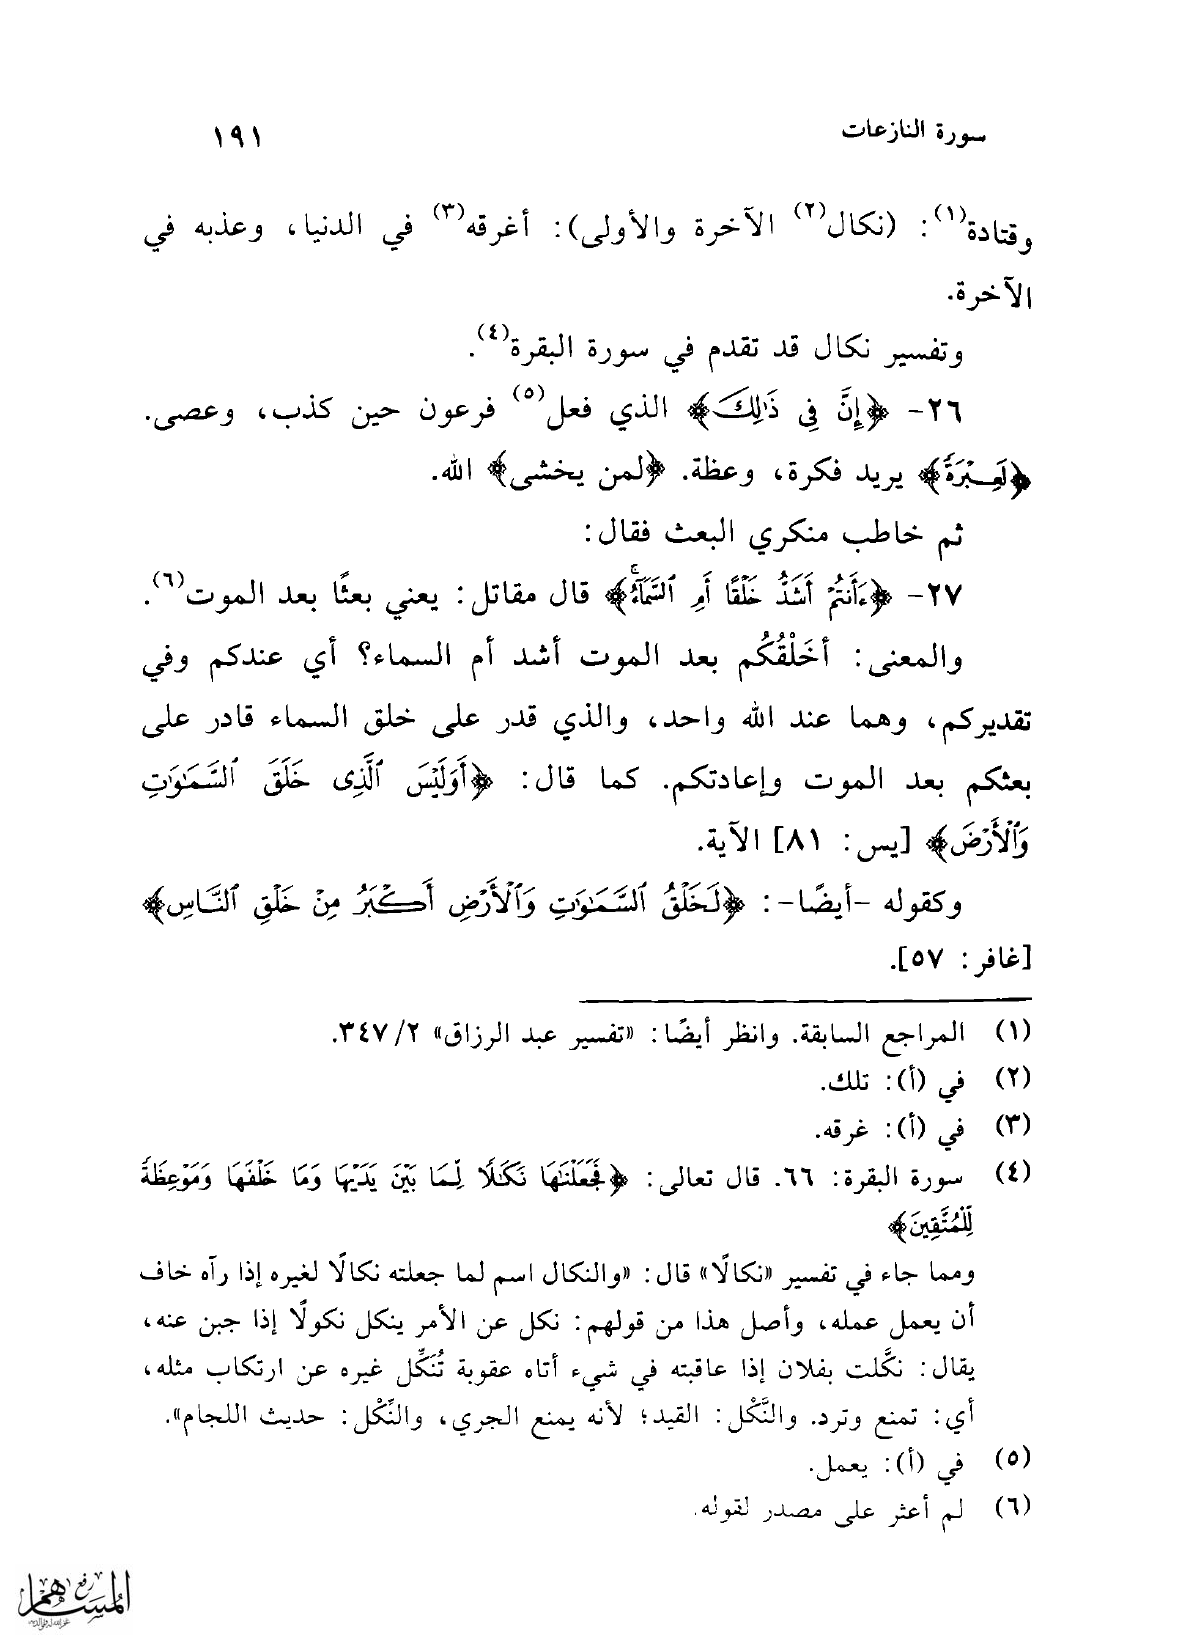 سورة النازعات
١٩١
وقتادة(١): (نكال(٢) الآخرة والأولى): أغرقه(٣) في الدنيا، وعذبه في
الآخرة.
وتفسير نكال قد تقدم في سورة البقرة(٤).
٢٦- ﴿إِنَّ فِي ذَٰلِكَ﴾ الذي فعل(٥) فرعون حين كذب، وعصى.
﴿لَعِبْرَةً﴾ يريد فكرة، وعظة. ﴿لمن يخشى﴾ الله.
ثم خاطب منكري البعث فقال:
٢٧- ﴿ءَأَنتُمْ أَشَدُّ خَلْقًا أَمِ ٱلسَّمَآءُ ۚ﴾ قال مقاتل: يعني بعثًا بعد الموت(٦).
والمعنى: أخَلْقُكُم بعد الموت أشد أم السماء؟ أي عندكم وفي
تقديركم، وهما عند الله واحد، والذي قدر على خلق السماء قادر على
بعثكم بعد الموت وإعادتكم. كما قال: ﴿أَوَلَيْسَ ٱلَّذِى خَلَقَ ٱلسَّمَـٰوَٰتِ
وَٱلْأَرْضَ﴾ [يس: ٨١] الآية.
وكقوله -أيضًا-: ﴿لَخَلْقُ ٱلسَّمَـٰوَٰتِ وَٱلْأَرْضِ أَكْبَرُ مِنْ خَلْقِ ٱلنَّاسِ﴾
[غافر: ٥٧].
(١) المراجع السابقة. وانظر أيضًا: «تفسير عبد الرزاق» ٢/ ٣٤٧.
(٢) في (أ): تلك.
(٣) في (أ): غرقه.
(٤) سورة البقرة: ٦٦. قال تعالى: ﴿فَجَعَلْنَـٰهَا نَكَـٰلًا لِّمَا بَيْنَ يَدَيْهَا وَمَا خَلْفَهَا وَمَوْعِظَةً
لِّلْمُتَّقِينَ﴾
ومما جاء في تفسير «نكالًا» قال: «والنكال اسم لما جعلته نكالًا لغيره إذا رآه خاف
أن يعمل عمله، وأصل هذا من قولهم: نكل عن الأمر ينكل نكولًا إذا جبن عنه،
يقال: نكَّلت بفلان إذا عاقبته في شيء أتاه عقوبة تُنَكِّل غيره عن ارتكاب مثله،
أي: تمنع وترد. والنَّكْل: القيد؛ لأنه يمنع الجري، والنِّكْل: حديث اللجام».
(٥) في (أ): يعمل.
(٦) لم أعثر على مصدر لقوله.